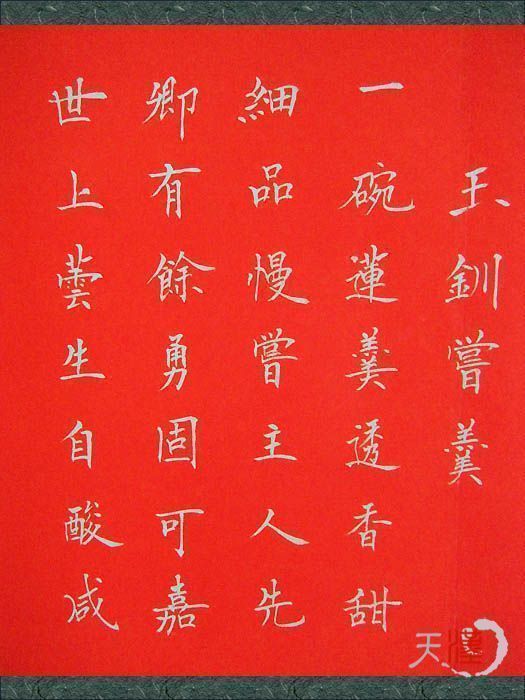 玉釧嘗羹
一碗蓮羹透香甜
細品慢嘗主人先
卿有餘勇固可嘉
世上蕓生自酸咸
天